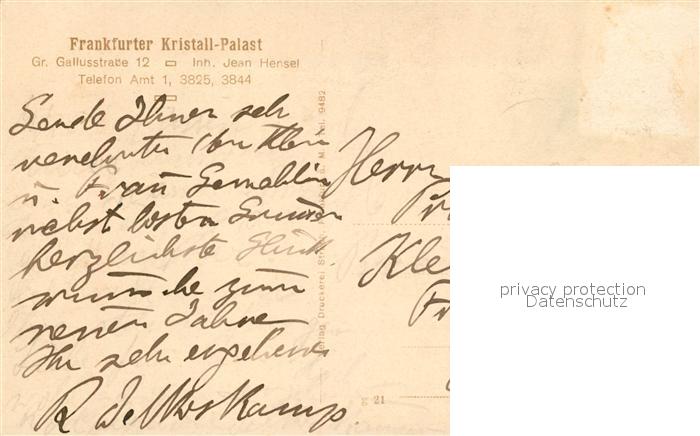 Frankfurter Kristall-Palast
Gr. Gallusstraße 12 Inh. Jean Hensel
Telefon Amt 1, 3825, 3844
Sende Ihnen sehr
verehrter Herr Klem
u. Frau Gemahlin
nebst besten Grüssen
herzlichste Glück
wünsche zum
neuen Jahre
Ihr sehr ergebener
R
Herrn
Kle
Fr
Druckerei
Tel. 9482
g 21
privacy protection
Datenschutz